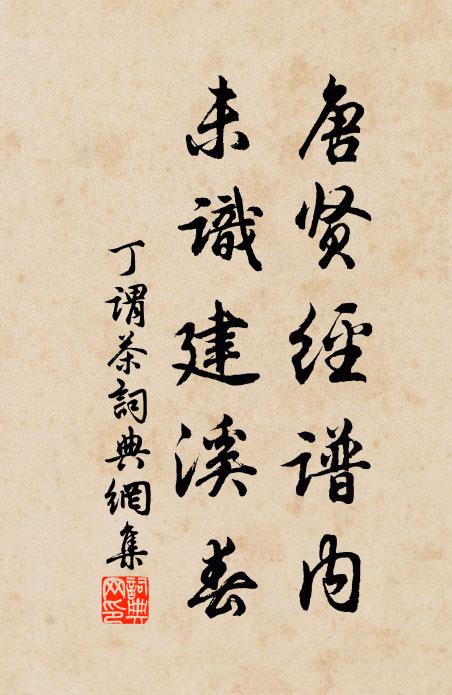 唐贤經谱内
未識建溪春
丁谓茶詞典網集
詞典網印